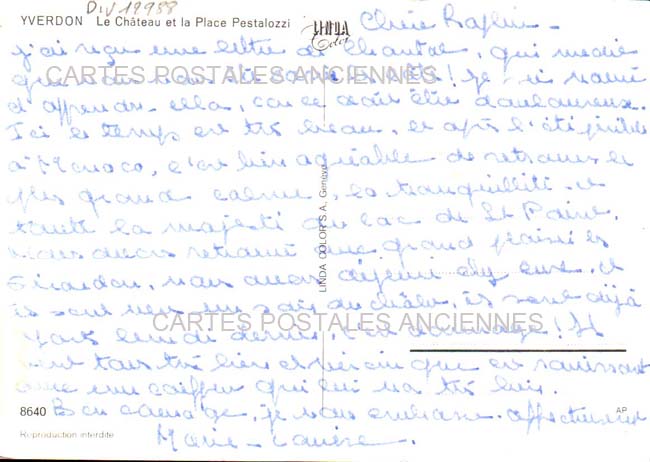 Div 18988
YVERDON Le Château et la Place Pestalozzi
LINDA
Color
Chère
j'ai reçu une lettre de Chantal, qui me dit
que vous
CARTES POSTALES ANCIENNES
! Je
d'apprendre cela, car ce doit être douloureux.
Ici le temps est très beau, et après l'été pénible
à Monaco, c'est bien agréable de retrouver le
plus grand calme, la tranquillité et
toute la majesté du lac de St
nous avons retrouvé avec grand plaisir les
Girardon, nous avons déjeuné chez eux, et
ils sont venus un soir au châlet, ils sont déjà
partis lundi dernier, c'est dommage! Ils
CARTES POSTALES ANCIENNES
vont tous très bien et que
avec une coiffure qui lui va très bien.
Bon courage, je vous embrasse affectueusement
Marie-
LINDA COLOR S.A., Genève
8640
AP
Reproduction interdite